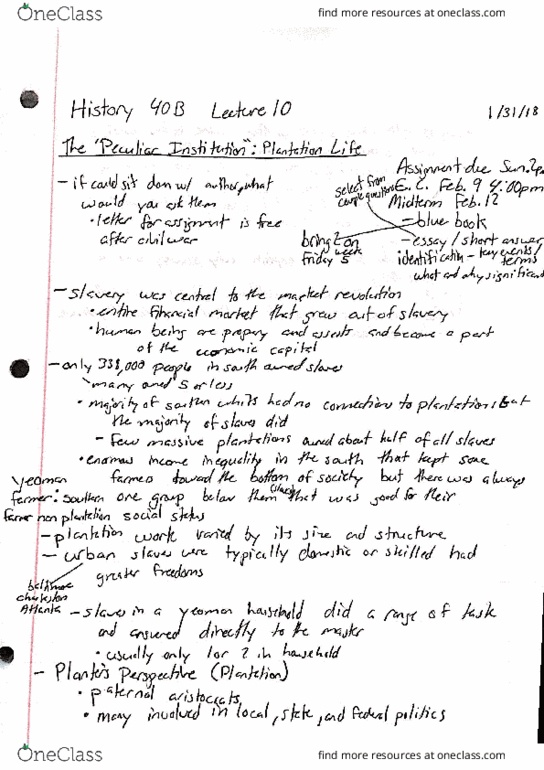 OneClass
find more resources at oneclass.com
History 40B Lecture 10
1/31/18
The "Peculiar Institution": Plantation Life
Assignment due Sun. 2pm
E.C. Feb. 9 4:00pm
Midterm Feb. 12
- blue book
- essay / short answer
identification - key events / terms
what and why significant
select from couple questions
bring 2 on
Friday week 5
- if could sit down w/ author, what
would you ask them
• letter for assignment is free
after civil war
- slavery was central to the market revolution
• entire financial market that grew out of slavery
• human being are propery and assests and become a part
of the economic capital
- only 338,000 people in south owned slaves
many owned 5 or less
• majority of southern whites had no connections to plantations but
the majority of slaves did
- few massive plantations owned about half of all slaves
• enormous income inequality in the south that kept some
farmers toward the bottom of society but there was always
one group below them (slaves) that was good for their
social status
yeoman
farmer: southern
farmer non plantation
- plantation work varied by its size and structure
- urban slaves were typically domestic or skilled had
greater freedoms
baltimore
charleston
Atlanta
- slaves in a yeoman household did a range of task
and answered directly to the master
• usually only 1 or 2 in household
- Planter's Perspective (Plantation)
• paternal aristocrats
• many involved in local, state, and federal politics
OneClass
find more resources at oneclass.com